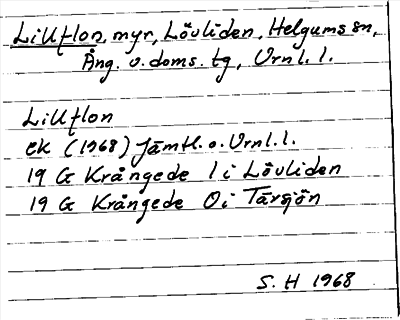 Lillflon, myr, Lövliden, Helgums sn,
Ång. v. doms. tg, Vrnl. l.
Lillflon
ek (1968) Jämtl. o. Vrnl. l.
19 G Krångede 1 i Lövliden
19 G Krångede 0 i Tärsjön
S. H 1968